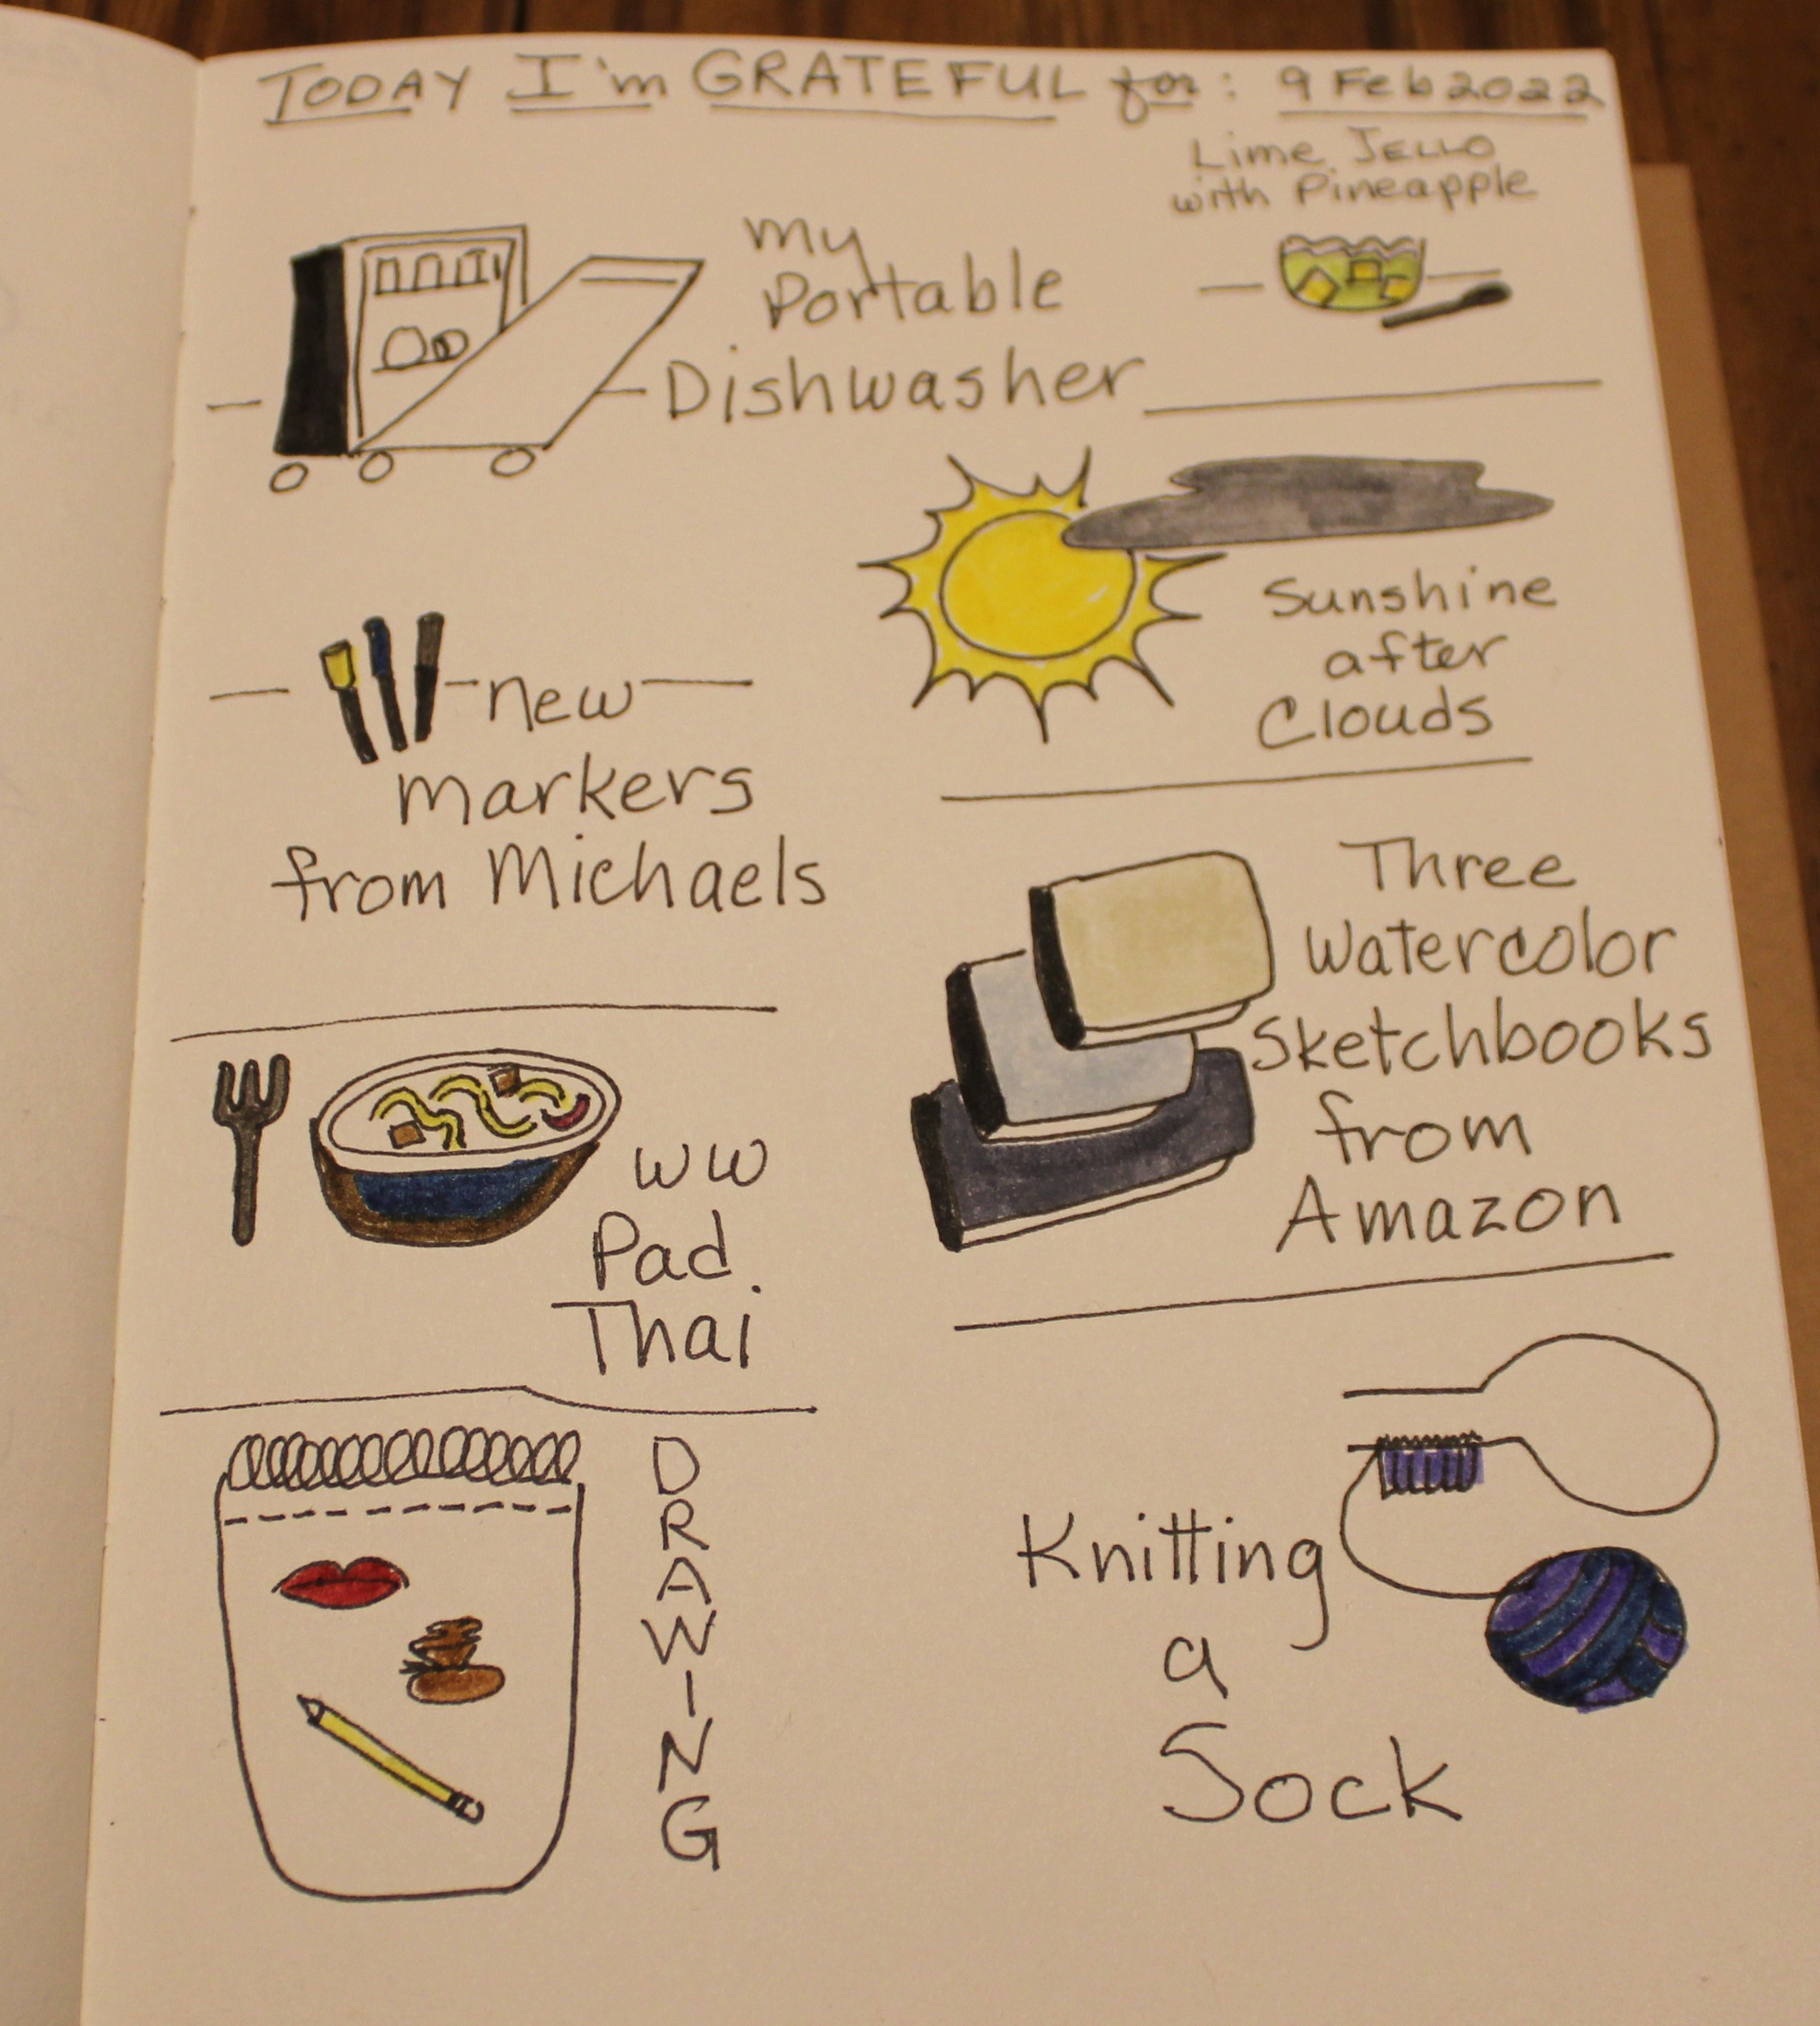 TODAY I'm GRATEFUL for: 9 Feb 2022
Lime JELLO
with Pineapple
my
Portable
Dishwasher
Sunshine
after
Clouds
new
markers
from Michaels
Three
Watercolor
Sketchbooks
from
Amazon
WW
Pad
Thai
DRAWING
Knitting
a
Sock